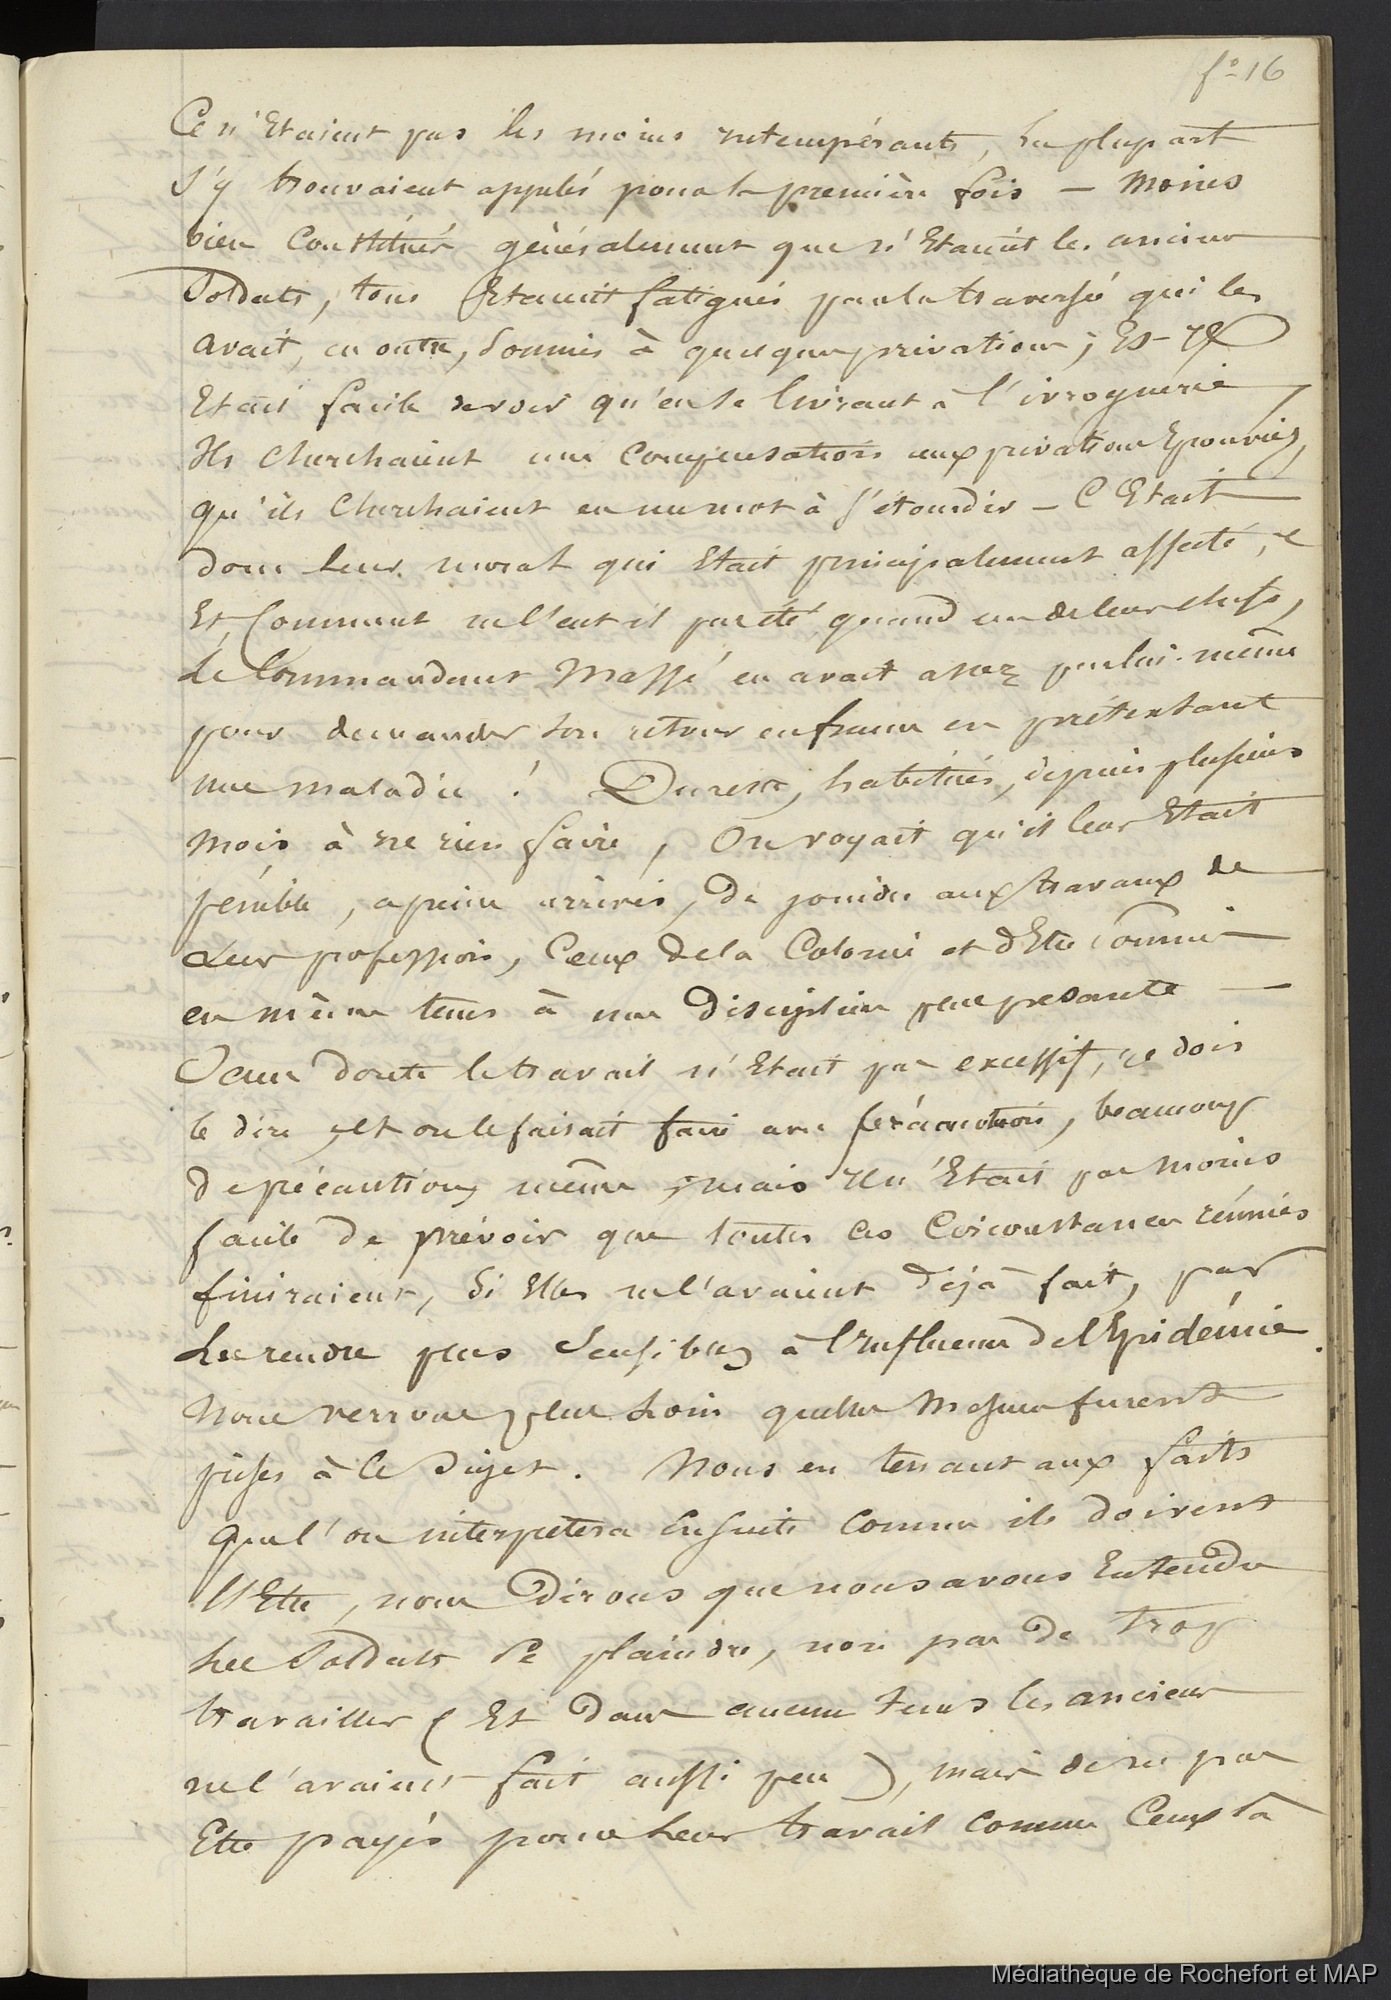 fo 16
Ce n'Etaient pas les moins intempérants, La plupart
s'y trouvaient appelés pour la première fois — Moins
bien Constitués généralement que n'Etaient les anciens
Soldats, tous Etaient fatigués par la traversée qui les
avait, en outre, soumis à quelques privations; Et il
Etait facile de voir qu'en se livrant à l'ivrognerie
Ils cherchaient une Compensation aux privations Eprouvées,
qu'ils cherchaient en un mot à s'étourdir — C'Etait
donc leur moral qui Etait principalement affecté,
Et, Comment ne l'eut il pas été quand un de leurs chefs,
Le Commandant Massé en avait assez par lui-même
pour demander son retour en france en prétextant
une maladie ! Du reste, habitués, depuis plusieurs
mois à ne rien faire, On voyait qu'il leur Etait
pénible, a peine arrivés, de joindre aux travaux de
Leur profession, Ceux de la Colonie et d'Etre soumis
en même tems à une discipline plus pesante —
Sans doute le travail n'Etait pas excessif, je dois
le dire, et on le faisait faire avec précaution, beaucoup
de précautions même, mais il n'Etait pas moins
facile de prévoir que toutes ces Circonstances réunies
finiraient, Si Elles ne l'avaient déjà fait, par
Les rendre plus Sensibles à l'Influence de l'Epidémie.
Nous verrons plus Loin quelles Mesures furent
prises à ce Sujet. Nous en tenant aux faits
que l'on interpretera Ensuite comme ils doivent
l'Etre, nous Dirons que nous avons Entendu
Les Soldats Se plaindre, non pas de Trop
travailler ( Et dans aucun tems les anciens
ne l'avaient fait aussi peu ), mais de ne pas
Etre payés pour Leur travail comme Ceux là
Médiathèque de Rochefort et MAP